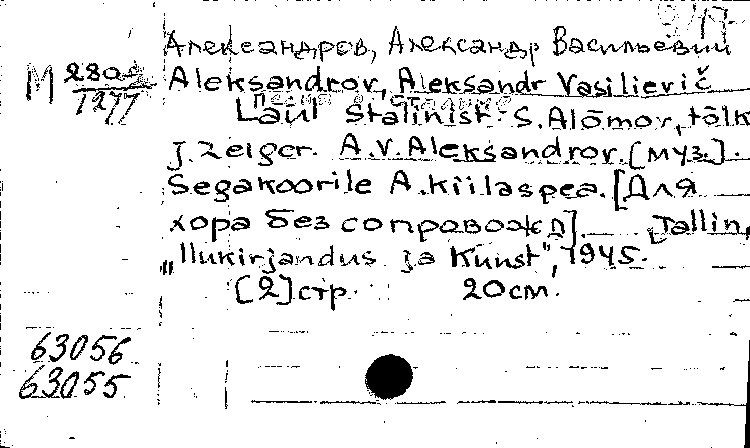 Александров, Александр Васильевич
M 280
1277
Aleksandrov, Aleksandr Vasilievič
Песня о Сталине
Laul Stalinist. S. Alõmov, tõlk.
J. Zeiger. A.V. Aleksandrov. [муз.].
Segakoorile A. Kiilaspea. [Для
хора без сопровожд]. Tallin,
„Ilukirjandus ja Kunst", 1945.
[2] стр. 20 см.
63056
63055